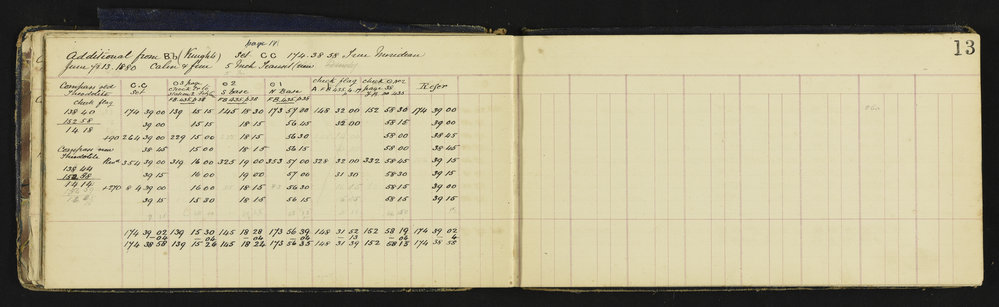 page 181
13
Additional from Bb (Knights) Set CC 174.38.58 True Meridian
June 13. 1880 Calm & fine 5 Inch Transit (new
Compass old C.C O3 page O2 O1 check flag check O No 2 Refer
Theodolite Set check Tr to S Base N Base A FB 435 page 38
check flag FB 435 p38 FB 435 p38 FB 435 p38 FB 435
138 40 174 39 00 139 15 15 145 18 30 173 57 00 148 32 00 152 58 30 174 39 00
152 58 39 00 15 15 18 15 56 45 32 00 58 15 39 00
14 18
+90 264 39 00 229 15 00 18 15 56 30 58 00 38 45
Compass new 38 45 15 00 18 15 56 15 58 00 38 45
Theodolite Revd 354 39 00 319 16 00 325 19 00 353 57 00 328 32 00 332 58 45 39 15
138 44 39 15 16 00 19 00 57 00 31 30 58 30 39 15
152 58
14 14 +270 84 39 00 16 00 18 15 56 30 58 15 39 00
39 15 15 30 18 15 56 15 58 15 39 15
174 39 02 139 15 30 145 18 28 173 56 39 148 31 52 152 58 19 174 39 02
- 04 - 04 - 04 - 04 - 13 - 04 4
174 38 58 139 15 26 145 18 24 173 56 35 148 31 39 152 58 15 174 38 58